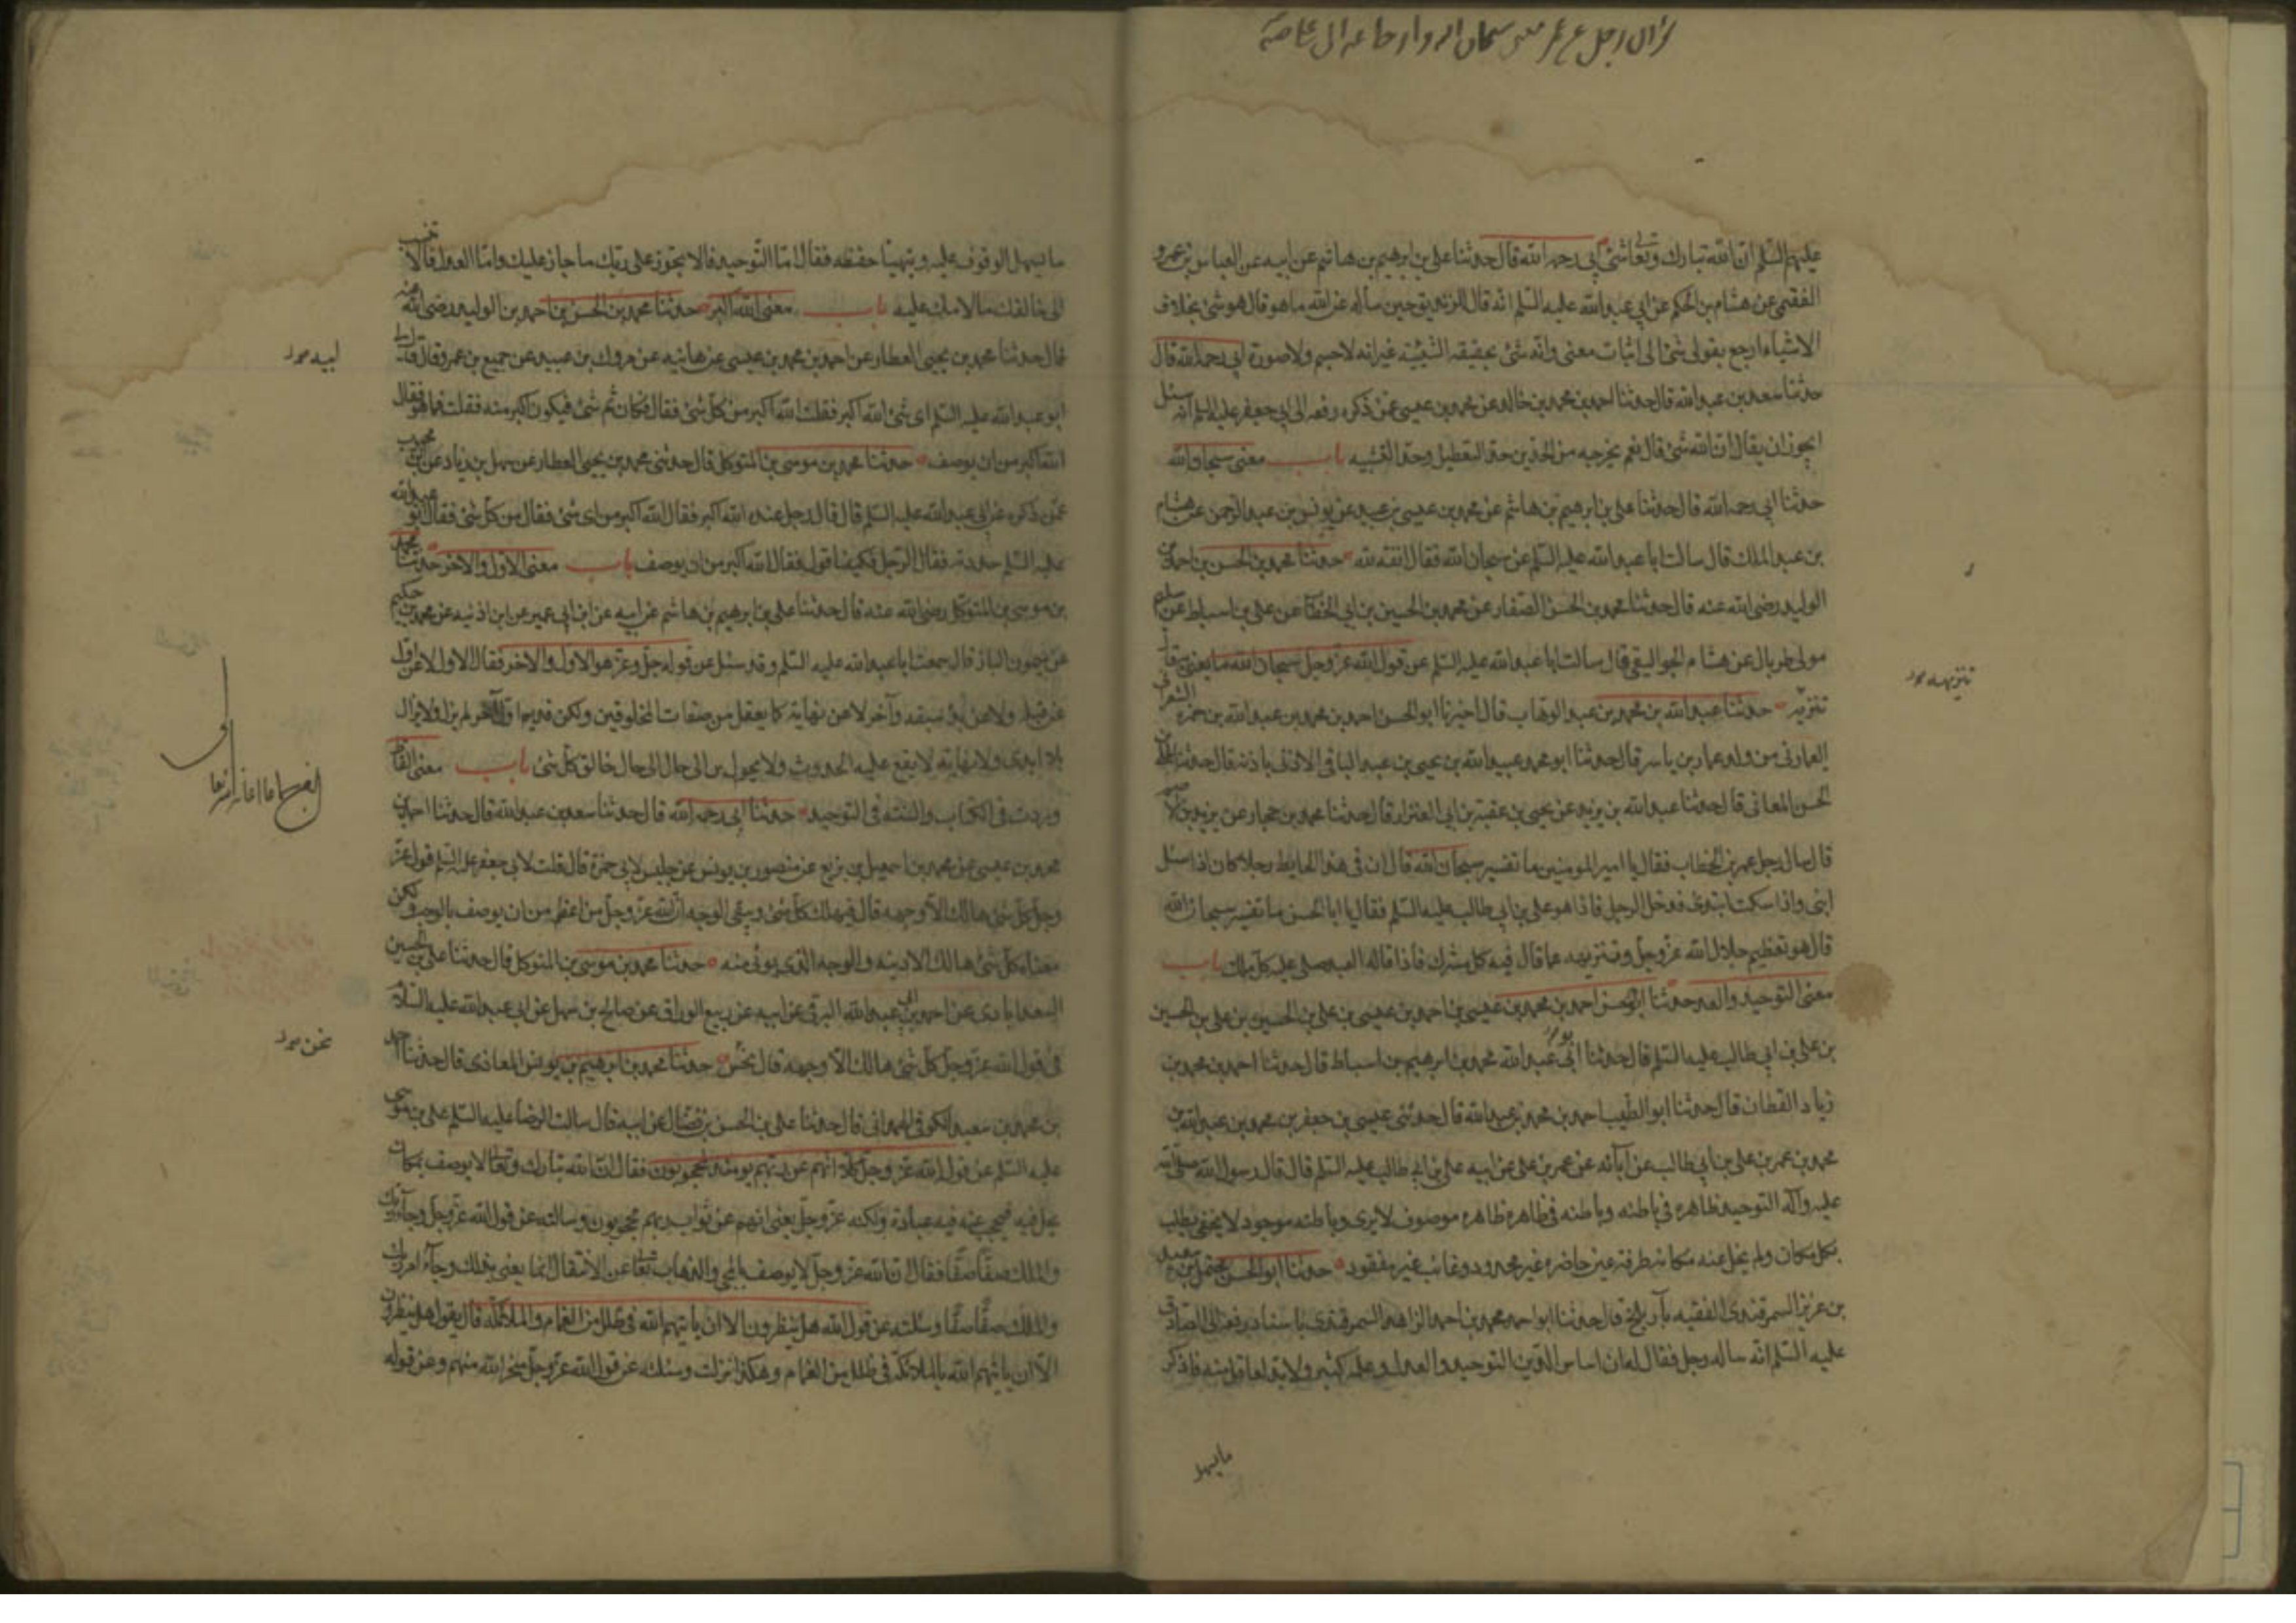 عليهم السلم ان الله تبارك وتعا شئ ابى رحمه الله قال حدثنا على بن ابرهيم بن هاشم عن ابيه عن العباس بن عمرو
الفقيمى عن هشام بن الحكم عن ابى عبد الله عليه السلم انه قال للزنديق حين سأله عن الله ما هو قال هو شئ بخلاف
الاشياء ارجع بقولى شئ الى اثبات معنى وانه شئ بحقيقة الشيئية غير انه لا جسم ولا صورة ابى رحمه الله قال
حدثنا سعد بن عبد الله قال حدثنا احمد بن محمد بن خالد عن محمد بن عيسى عمن ذكره رفعه الى ابى جعفر عليه السلم انه سئل
ايجوز ان يقال ان الله شئ قال نعم يخرجه من الحدين حد التعطيل وحد التشبيه باب معنى سبحان الله
حدثنا ابى رحمه الله قال حدثنا على بن ابرهيم بن هاشم عن محمد بن عيسى بن عبيد عن يونس بن عبد الرحمن عن هشام
بن عبد الملك قال سالت ابا عبد الله عليه السلم عن سبحان الله فقال انفة لله حدثنا محمد بن الحسن بن احمد بن
الوليد رضى الله عنه قال حدثنا محمد بن الحسن الصفار عن محمد بن الحسين بن ابى الخطاب عن على بن اسباط عن سليم
مولى طربال عن هشام الجواليقى قال سالت ابا عبد الله عليه السلم عن قول الله عز وجل سبحان الله ما يعنى به قال
تنزيه حدثنا عبد الله بن محمد بن عبد الوهاب قال اخبرنا ابو الحسن احمد بن محمد بن عبد الله بن حمزة الشعرانى
العمارى من ولد عمار بن ياسر قال حدثنا ابو محمد عبيد الله بن يحيى بن عبد الباقى الاذنى باذنه قال حدثنا على بن
الحسن المعانى قال حدثنا عبد الله بن يزيد عن يحيى بن عقبة بن ابى العيزار قال حدثنا محمد بن حجار عن يزيد بن الاصم
قال سال رجل عمر بن الخطاب فقال يا امير المومنين ما تفسير سبحان الله قال ان فى هذا الحايط رجلا كان اذا سئل
انبى واذا سكت ابتدى فدخل الرجل فاذا هو على بن ابى طالب عليه السلم فقال يا ابا الحسن ما تفسير سبحان الله
قال هو تعظيم جلال الله عز وجل وتنزيهه عما قال فيه كل مشرك فاذا قاله العبد صلى عليه كل ملك باب
معنى التوحيد والعدل حدثنا ابو الحسن احمد بن محمد بن عيسى بن احمد بن عيسى بن على بن الحسين بن على بن الحسين
بن على بن ابى طالب عليه السلم قال حدثنا ابو عبد الله محمد بن ابرهيم بن اسباط قال حدثنا احمد بن محمد بن
زياد القطان قال حدثنا ابو الطيب احمد بن محمد بن عبد الله قال حدثنى عيسى بن جعفر بن محمد بن عبد الله بن
محمد بن عمر بن على بن ابى طالب عن آبائه عن عمر بن على عن ابيه على بن ابى طالب عليه السلم قال قال رسول الله صلى الله
عليه وآله التوحيد ظاهره فى باطنه وباطنه فى ظاهره ظاهره موصوف لا يرى وباطنه موجود لا يخفى يطلب
بكل مكان ولم يخل عنه مكان طرفة عين حاضر غير محدود وغائب غير مفقود حدثنا ابو الحسن محمد بن سعيد
بن عزيز السمرقندى الفقيه بارض بلخ قال حدثنا ابو احمد محمد بن احمد الزاهد السمرقندى باسناده رفعه الى الصادق
عليه السلم انه ساله رجل فقال له ان اساس الدين التوحيد والعدل وعلمه كثير ولا بد لعاقل منه فاذكر
ما يسهل
تنزيهه
ما يسهل الوقوف عليه ويتهيأ حفظه فقال اما التوحيد فالا تجوز على ربك ما جاز عليك واما العدل فالا تنسب
الى خالقك ما لامك عليه باب معنى الله اكبر حدثنا محمد بن الحسن بن احمد بن الوليد رضى الله عنه
قال حدثنا محمد بن يحيى العطار عن احمد بن محمد بن عيسى عن هانيه عن مروك بن عبيد عن جميع بن عمرو قال قال لى
ابو عبد الله عليه السلم اى شئ الله اكبر فقلت الله اكبر من كل شئ فقال فكان ثم شئ فيكون اكبر منه فقلت فما هو فقال
الله اكبر من ان يوصف حدثنا محمد بن موسى بن المتوكل قال حدثنى محمد بن يحيى العطار عن سهل بن زياد عن ابن محبوب
عمن ذكره عن ابى عبد الله عليه السلم قال قال رجل عنده الله اكبر فقال الله اكبر من اى شئ فقال من كل شئ فقال ابو عبد الله
عليه السلم حددته فقال الرجل فكيف اقول فقال الله اكبر من ان يوصف باب معنى الاول والاخر حدثنا محمد
بن موسى بن المتوكل رضى الله عنه قال حدثنا على بن ابرهيم بن هاشم عن ابيه عن ابن ابى عمير عن ابن اذنيه عن محمد بن حكيم
عن ميمون البان قال سمعت ابا عبد الله عليه السلم وقد سئل عن قوله جل وعز هو الاول والاخر فقال الاول لا عن اول
عن قبله ولا عن بدئ سبقه وآخر لا عن نهاية كما يعقل من صفات المخلوقين ولكن قديم اول آخر لم يزل ولا يزال
بلا بدى ولا نهاية لا يقع عليه الحدوث ولا يحول من الى حال الى حال خالق كل شئ باب معنى الفاظ
وردت فى الكتاب والسنة فى التوحيد حدثنا ابى رحمه الله قال حدثنا سعد بن عبد الله قال حدثنا احمد بن
محمد بن عيسى عن محمد بن اسمعيل بن بزيع عن منصور بن يونس عن جليس لابى حمزة قال قلت لابى جعفر عليه السلم قول الله عز
وجل كل شئ هالك الا وجهه قال فيهلك كل شئ ويبقى الوجه ان الله عز وجل من اعظم من ان يوصف بالوجه ولكن
معناه كل شئ هالك الا دينه والوجه الذى يوتى منه حدثنا محمد بن موسى بن المتوكل قال حدثنا على بن الحسين
السعدابادى عن احمد بن ابى عبد الله البرقى عن ابيه عن ربيع الوراق عن صالح بن سهل عن ابى عبد الله عليه السلام
فى قول الله عز وجل كل شئ هالك الا وجهه قال نحن حدثنا محمد بن ابرهيم بن يونس المعاذى قال حدثنا احمد
بن محمد بن سعيد الكوفى الهمدانى قال حدثنا على بن الحسن بن فضال عن ابيه قال سالت الرضا عليه السلم على بن موسى
عليه السلم عن قول الله عز وجل كلا انهم عن ربهم يومئذ لمحجوبون فقال ان الله تبارك وتعا لا يوصف بمكان
يحل فيه فيحجب عنه فيه عباده ولكنه عز وجل يعنى انهم عن ثواب ربهم محجوبون وسالته عن قول الله عز وجل وجآء ربك
والملك صفا صفا فقال ان الله عز وجل لا يوصف بالمجى والذهاب تعا عن الانتقال انما يعنى بذلك وجآء امر ربك
والملك صفا صفا وسئلته عن قول الله هل ينظرون الا ان ياتيهم الله فى ظلل من الغمام والملائكة قال يقول هل ينظرون
الا ان ياتيهم الله بالملائكة فى ظلل من الغمام وهكذا نزلت وسئلته عن قول الله عز وجل سخر الله منهم وعن قوله
نحن